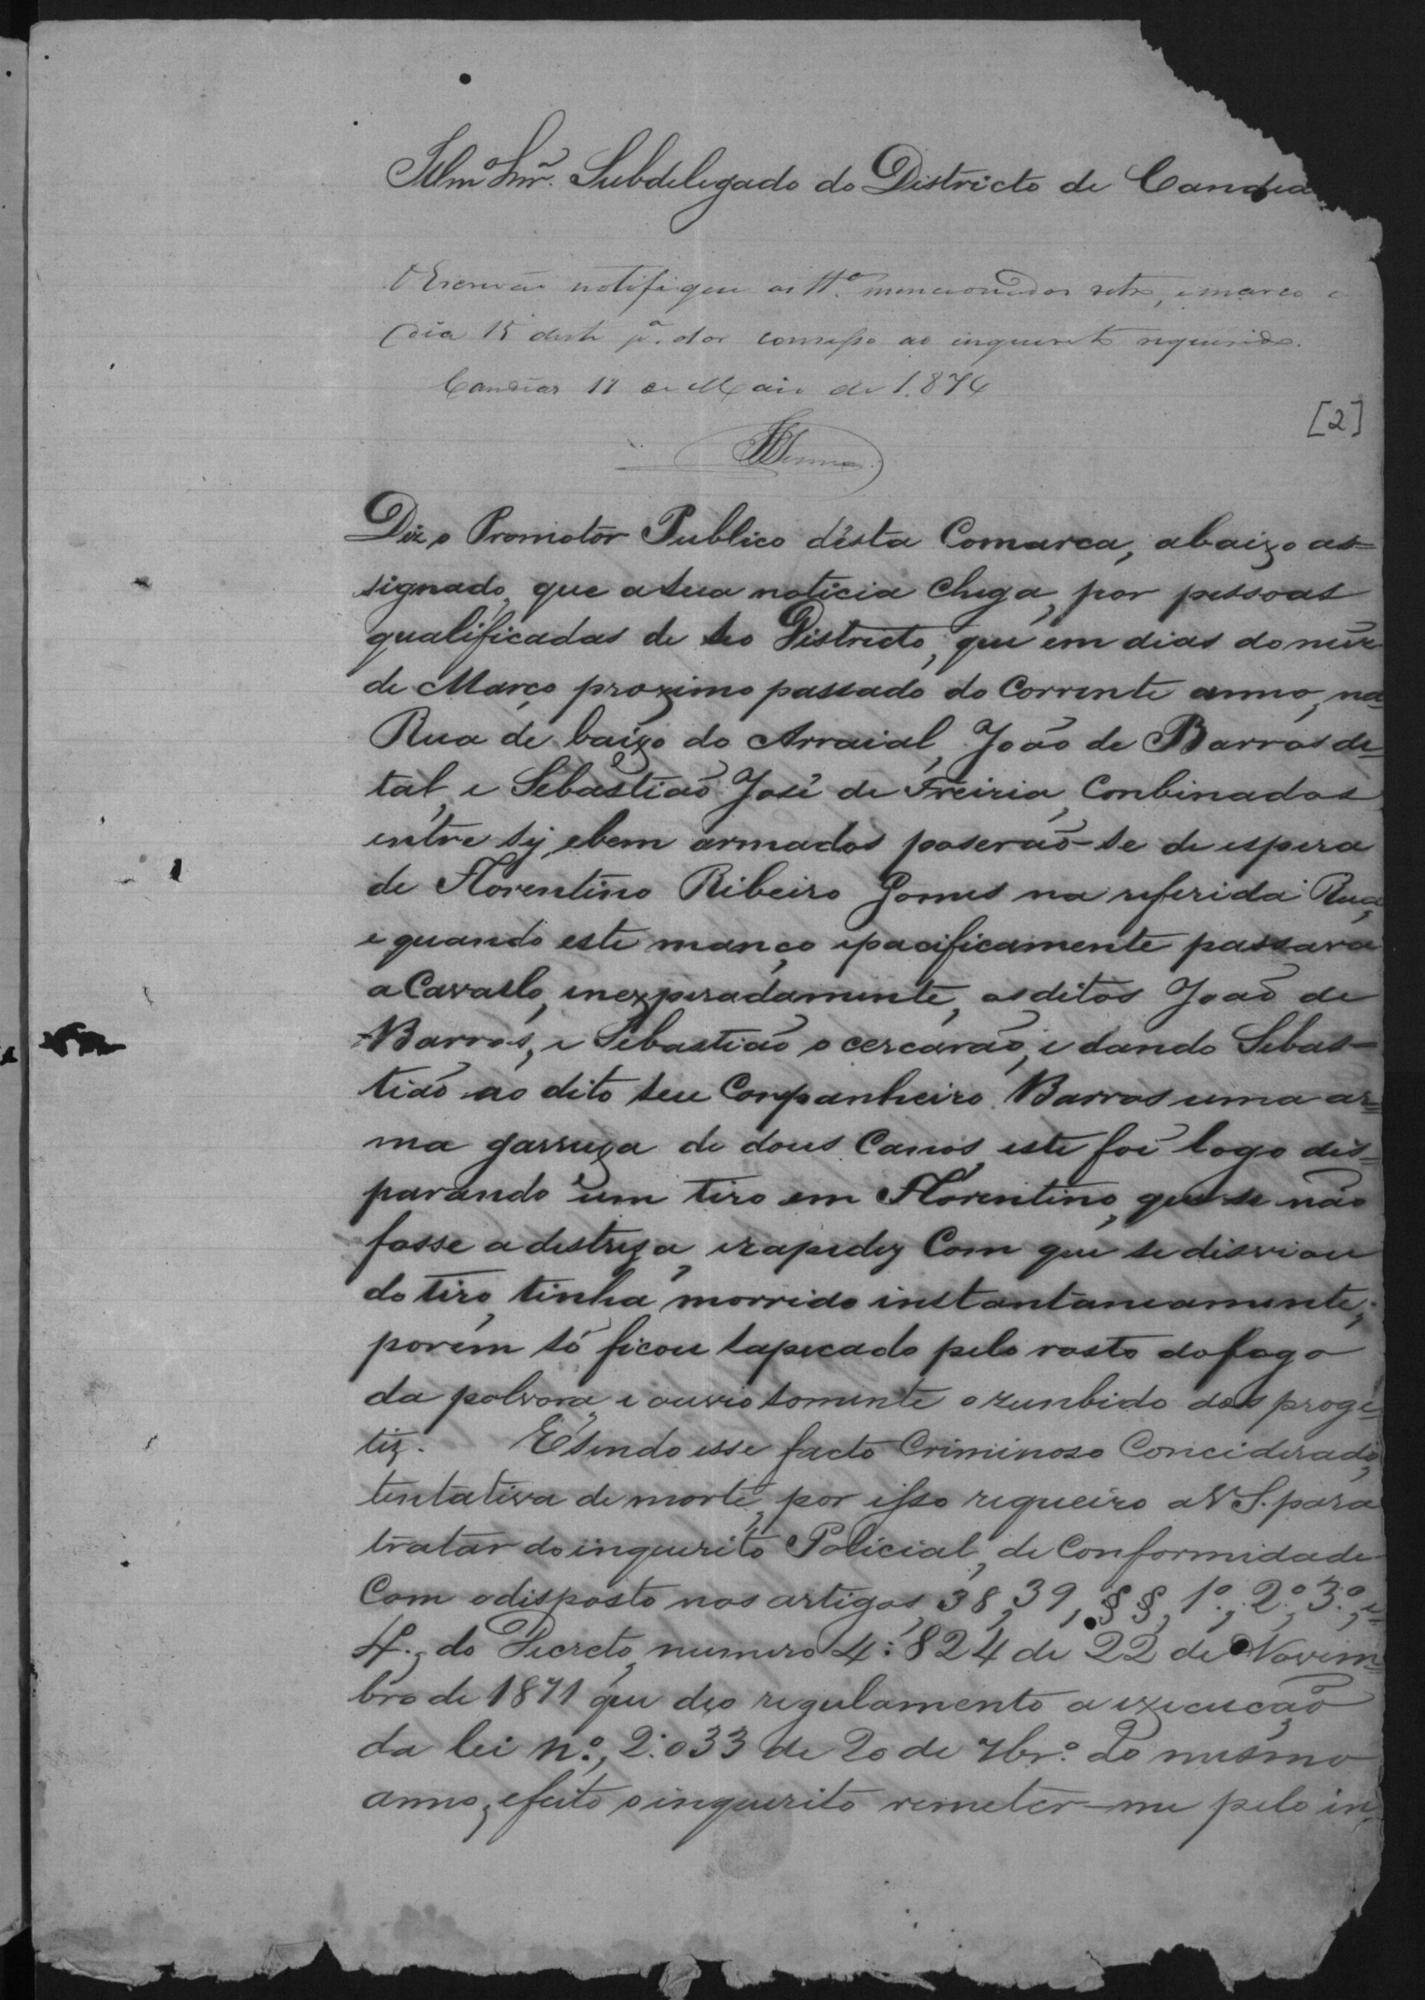 Illmº Snr. Subdelegado do Districto de Candeas
O Escrivão notifique as ttªs mencionadas retro, e marco o
dia 15 deste pª dar comesso ao inquerito requerido.
Candeas 11 de Maio de 1.874
[2]
Diz o Promotor Publico désta Comarca, abaixo as=
signado, que a sua noticia chega, por pessoas
qualificadas de seo Districto, que em dias do mez
de Março proximo passado do corrente anno, na
Rua de baixo do Arraial, João de Barros de
tal, e Sebastião José de Freiria, Conbinados
entre sy, e bem armados poserão-se de espera
de Florentino Ribeiro Gomes na referida Rua,
e quando este manço e pacificamente passava
a Cavallo, inexperadamente, os ditos João de
Barros, e Sebastião o cercarão, e dando Sebas=
tião ao dito seu Companheiro Barros uma ar=
ma garruxa de dous Canos, este foi logo dis=
parando um tiro em Florentino, que se não
fosse a destreza, e rapidez Com que se disviou
do tiro, tinha morrido instantaneamente;
porem só ficou sapecado pelo rosto do fogo
da polvora, e ouvio somente o zunbido dos proge=
tiz. E sendo esse facto Criminoso Conciderado,
tentativa de morte, por isso requeiro a V S. para
tratar do inquerito Policial, de Conformidade
Com o disposto nos artigos, 38, 39, §§, 1º, 2º, 3º, e
4º, do Decreto, numero 4:824 de 22 de Novem=
bro de 1871 que deo regulamento a execução
da lei nº, 2:033 de 20 de 7brº do mesmo
anno, e feito o inquerito remeter-me pelo in